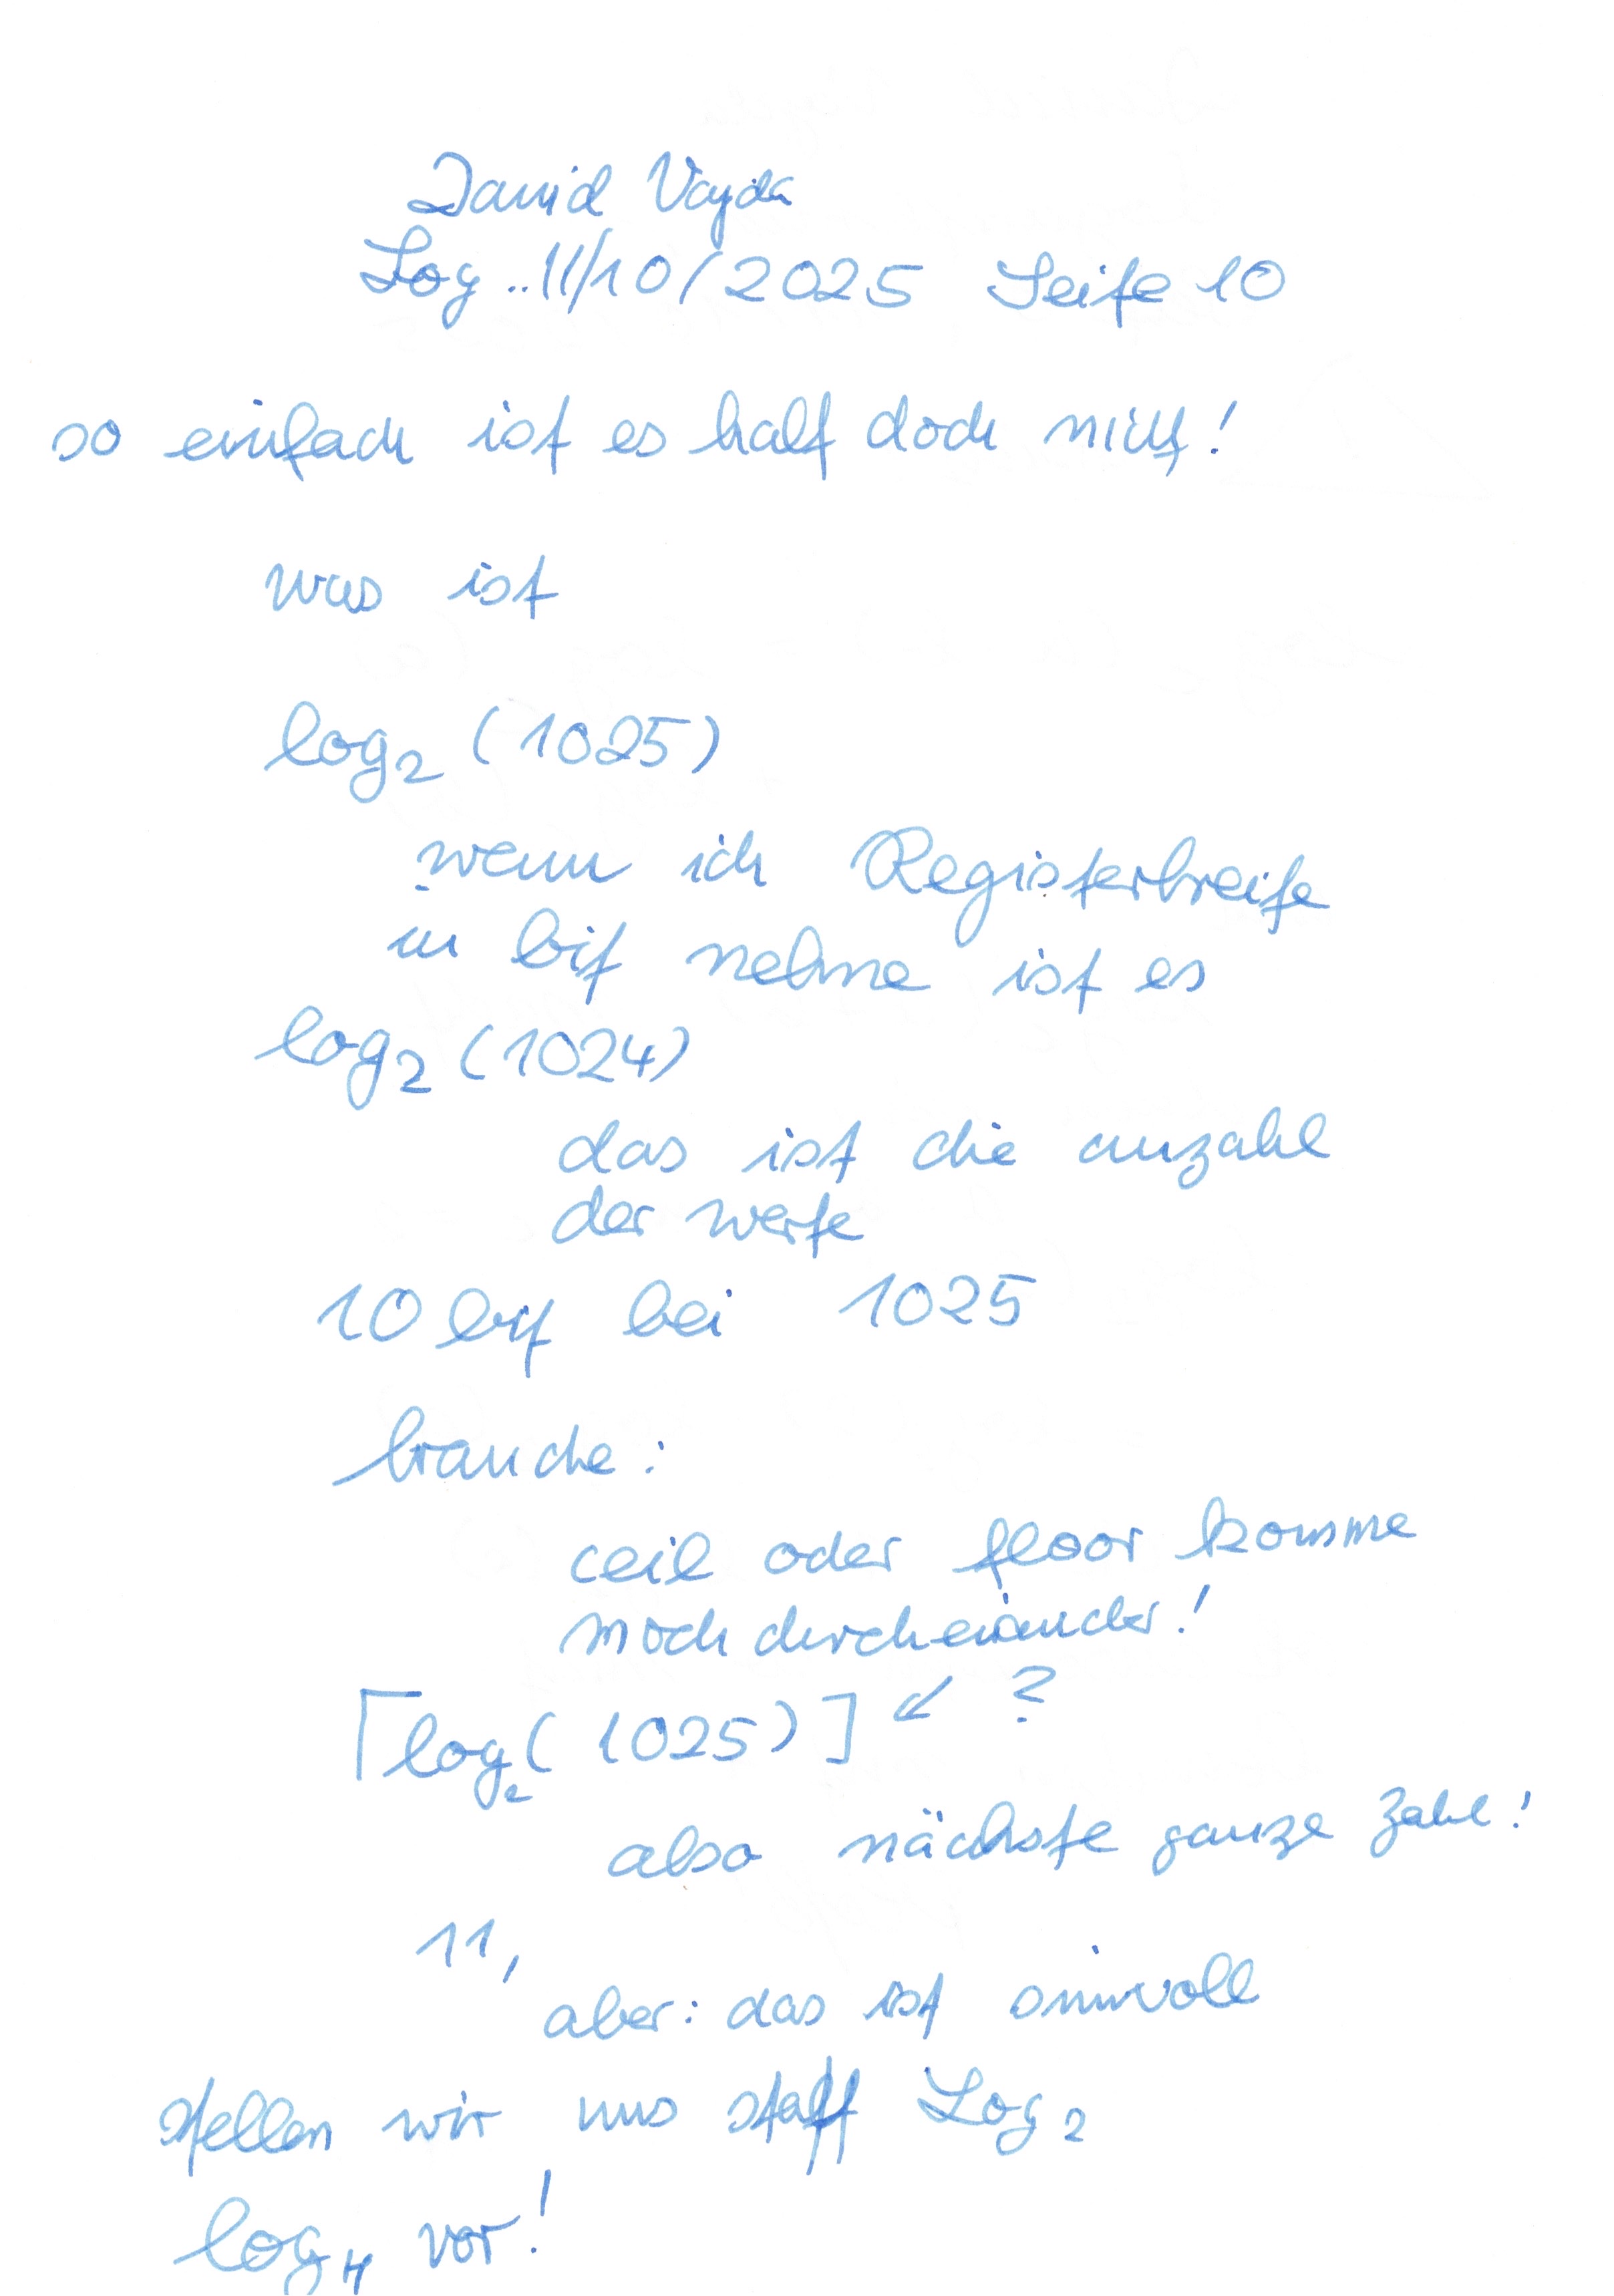 David Vajda
Log..11/10/2025 Seite 10
so einfach ist es halt doch nicht!
was ist
log₂ (1025)
wenn ich Registerbreite
in bit nehme ist es
log₂ (1024)
das ist die anzahl
der werte
10 bit bei 1025
brauche:
ceil oder floor komme
noch durcheinander!
⌈log₂( 1025)] ↙ ?
also nächste ganze Zahl!
11,
aber: das ist sinnvoll
stellen wir uns statt Log₂
log₄ vor!